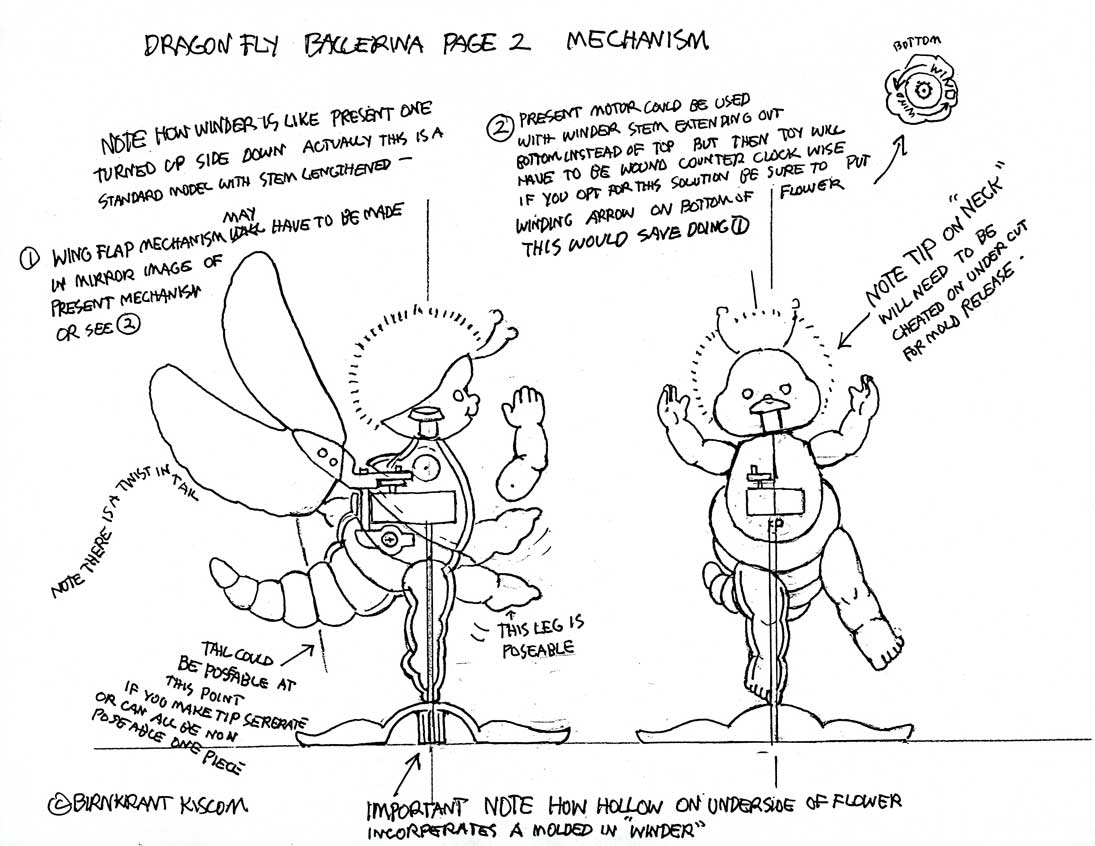 DRAGON FLY BALLERINA PAGE 2 MECHANISM
BOTTOM
WIND
WIND
NOTE HOW WINDER IS LIKE PRESENT ONE
TURNED UP SIDE DOWN ACTUALLY THIS IS A
STANDARD MODEL WITH STEM LENGTHENED —
① WING FLAP MECHANISM MAY HAVE TO BE MADE
IN MIRROR IMAGE OF
PRESENT MECHANISM
OR SEE ②
② PRESENT MOTOR COULD BE USED
WITH WINDER STEM EXTENDING OUT
BOTTOM INSTEAD OF TOP BUT THEN TOY WILL
HAVE TO BE WOUND COUNTER CLOCK WISE
IF YOU OPT FOR THIS SOLUTION BE SURE TO PUT
WINDING ARROW ON BOTTOM OF FLOWER
THIS WOULD SAVE DOING ①
NOTE TIP ON "NECK"
WILL NEED TO BE
CHEATED ON UNDER CUT
FOR MOLD RELEASE.
NOTE THERE IS A TWIST IN TAIL
THIS LEG IS
POSEABLE
TAIL COULD
BE POSEABLE AT
THIS POINT
IF YOU MAKE TIP SERERATE
OR CAN ALL BE NON
POSEABLE ONE PIECE
© BIRNKRANT KISCOM
IMPORTANT NOTE HOW HOLLOW ON UNDERSIDE OF FLOWER
INCORPERATES A MOLDED IN "WINDER"